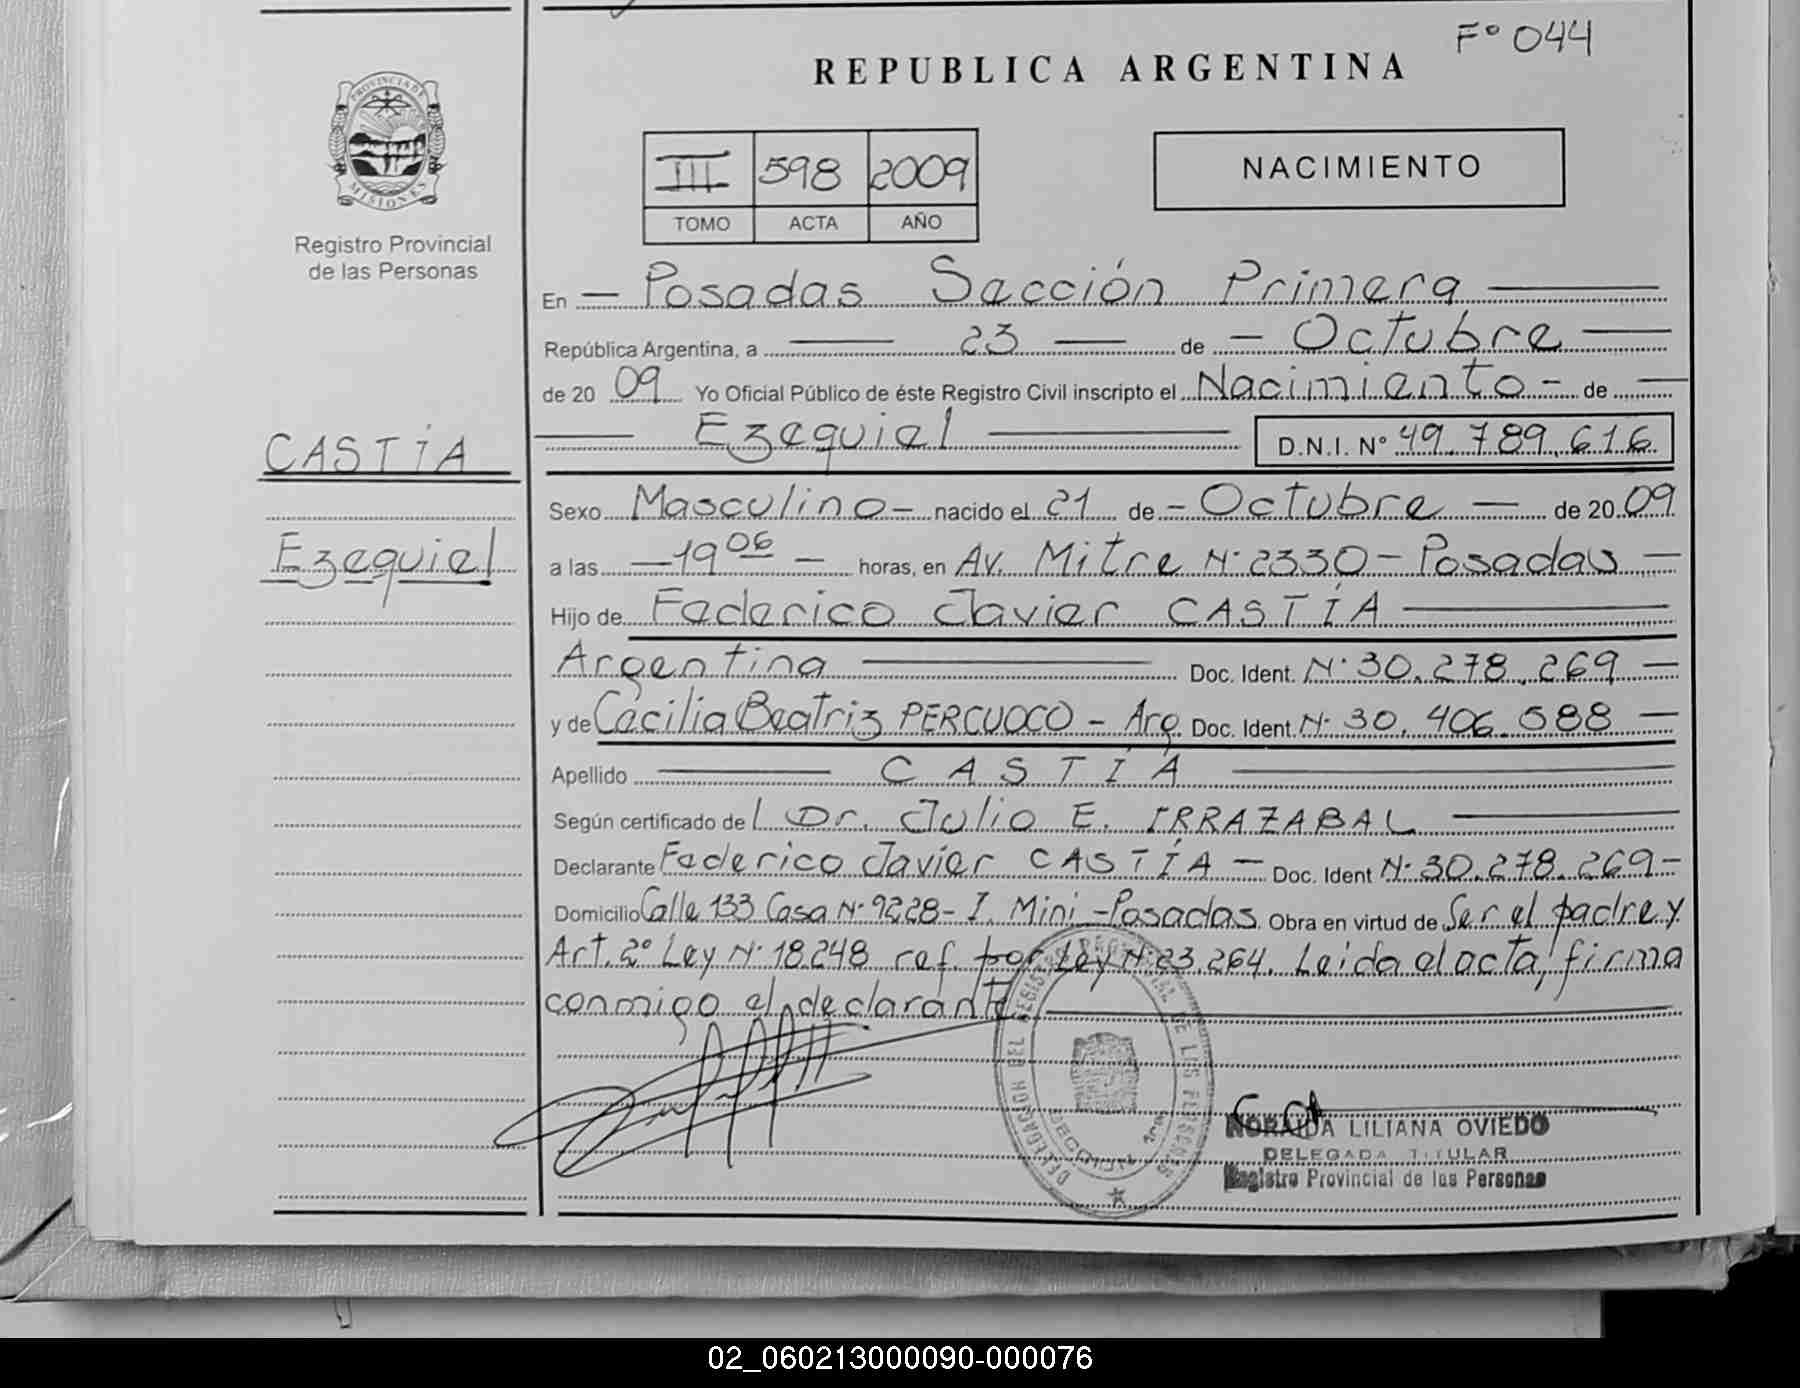 Fº 044
REPUBLICA ARGENTINA
PROVINCIA DE
MISIONES
Registro Provincial
de las Personas
III 598 2009
TOMO ACTA AÑO
NACIMIENTO
En — Posadas Sección Primera —
República Argentina, a — 23 — de — Octubre —
de 20 09 Yo Oficial Público de éste Registro Civil inscripto el Nacimiento - de —
— Ezequiel — D.N.I. Nº 49.789.616
CASTÍA
Ezequiel
Sexo Masculino - nacido el 21 de - Octubre — de 20 09
a las — 19 06 — horas, en Av. Mitre Nº 2330 - Posadas —
Hijo de Federico Javier CASTÍA —
Argentina — Doc. Ident. Nº 30.278.269 —
y de Cecilia Beatriz PERCUOCO - Arg. Doc. Ident. Nº 30.406.588 —
Apellido — CASTÍA —
Según certificado del Dr. Julio E. IRRAZABAL —
Declarante Federico Javier CASTÍA — Doc. Ident Nº 30.278.269 -
Domicilio Calle 133 Casa Nº 9228 - I. Mini - Posadas. Obra en virtud de Ser el padre y
Art. 2º Ley Nº 18.248 ref. por Ley Nº 23.264. Leida el acta, firma
conmigo el declarante —
DELEGACION DEL REGISTRO PROVINCIAL DE LAS PERSONAS
NORAIDA LILIANA OVIEDO
DELEGADA TITULAR
Registro Provincial de las Personas
02_060213000090-000076